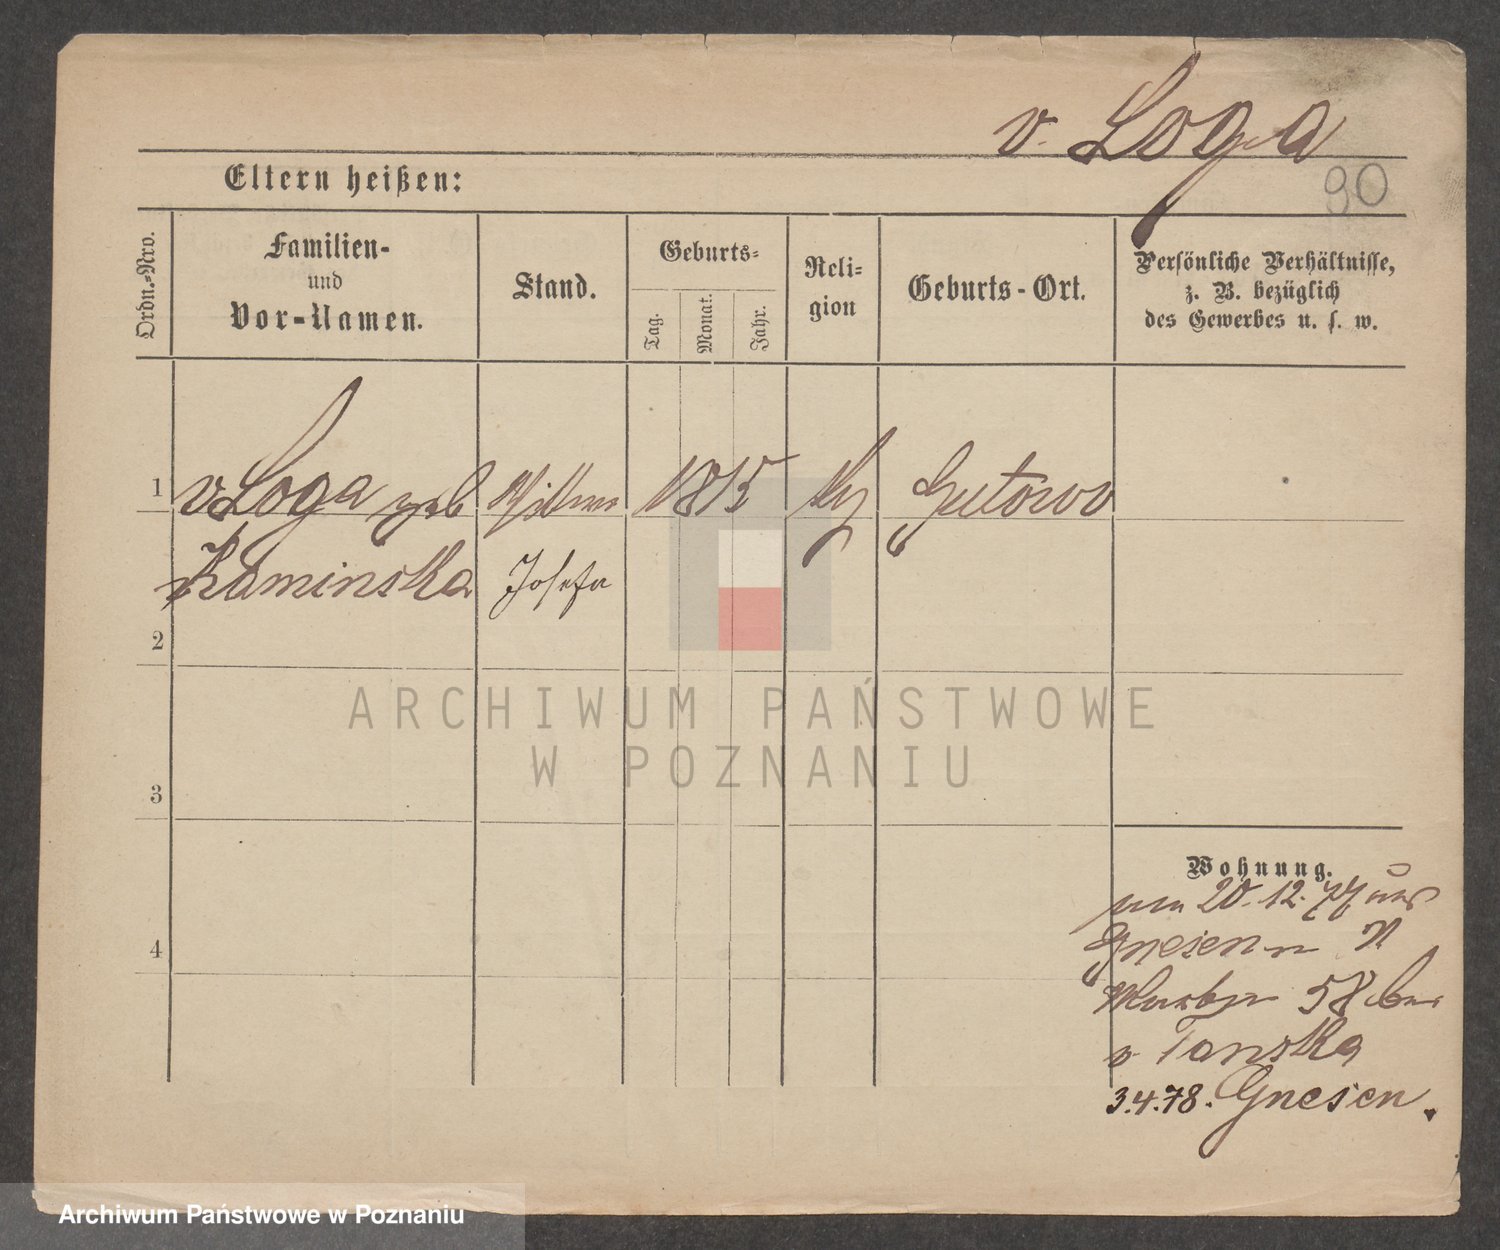 v. Loga
90
Eltern heißen:
Ordn.-Nro.
Familien-
und
Vor-Namen.
Stand.
Geburts-
Tag.
Monat.
Jahr.
Reli-
gion
Geburts-Ort.
Persönliche Verhältnisse,
z. B. bezüglich
des Gewerbes u. s. w.
1 v Loga geb Wittwe 1815 Gutowo
Kaminska Josefa
2
ARCHIWUM PAŃSTWOWE
W POZNANIU
3
Wohnung.
20. 12. 77 aus
Gnesen n
58 bei
4
v Tanska
3.4.78. Gnesen.
Archiwum Państwowe w Poznaniu